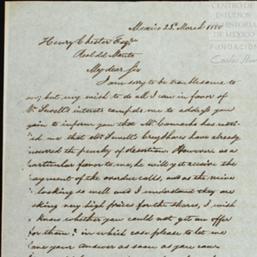 CENTRO DE
ESTUDIOS
DE HISTORIA
DE MEXICO
FUNDACIÓN
Carlos Slim
Mexico 23d March
Henry Chester Esqre
Real del Monte
My dear Sir
I am sorry to be troublesome to
you but my wish to do all I can in favor of
Mr interests compels me to address you
again & inform you that Mr Camacho has noti
ed me that Mr have already
incurred the penalty of desertion. However as a
particular favor to me, he will yet receive the
payment of the overdue calls, and as the mine
is looking so well and I understand they are
asking very high prices for the shares, I wish
know whether you could not get an offer
for them? in which case please to let
me have your answer as soon as you can.